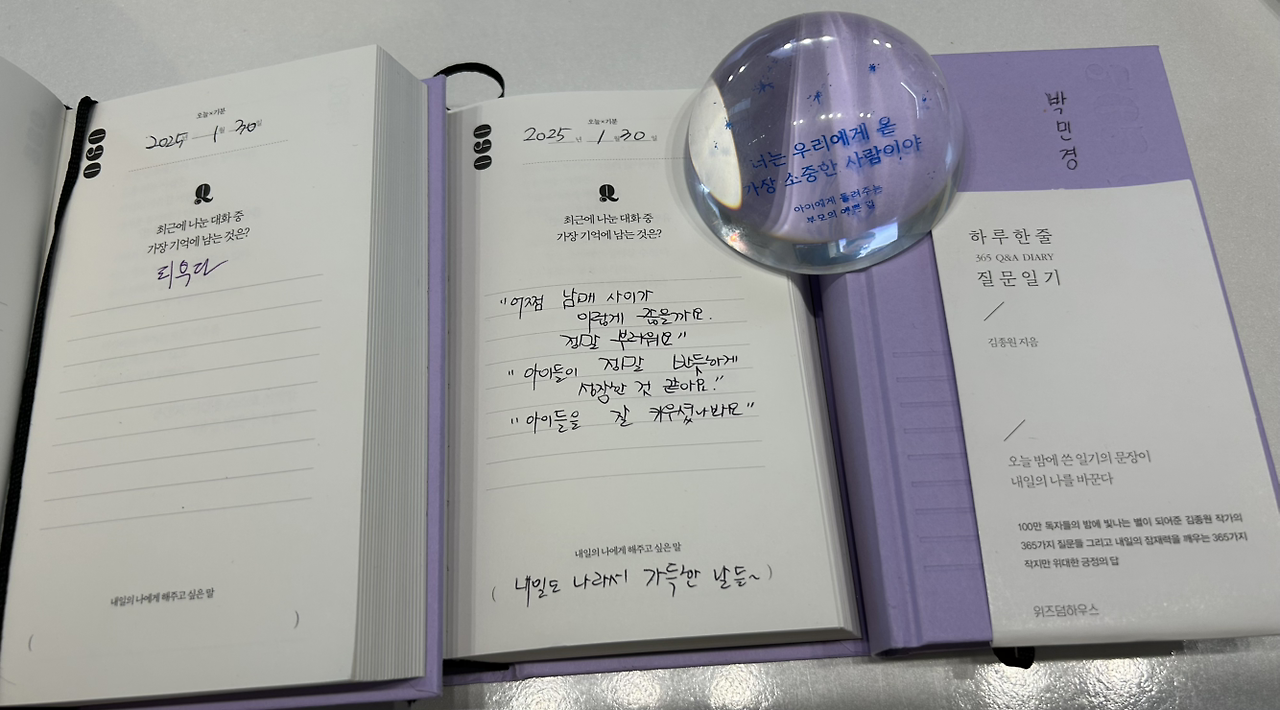 030
오늘×기분
2025년 1월 30일
Q
최근에 나눈 대화 중
가장 기억에 남는 것은?
내일의 나에게 해주고 싶은 말
( )
030
오늘×기분
2025년 1월 30일
Q
최근에 나눈 대화 중
가장 기억에 남는 것은?
"어쩜 남매 사이가
이렇게 좋을까요.
정말 부러워요"
"아이들이 정말 반듯하게
성장한 것 같아요."
"아이들을 잘 키우셨나봐요"
내일의 나에게 해주고 싶은 말
( 내일도 나라서 가득한 날들~ )
너는 우리에게 온
가장 소중한 사람이야
아이에게 들려주는
부모의 예쁜 말
박민경
하루 한 줄
365 Q&A DIARY
질문 일기
김종원 지음
오늘 밤에 쓴 일기의 문장이
내일의 나를 바꾼다
100만 독자들의 밤에 빛나는 별이 되어준 김종원 작가의
365가지 질문들 그리고 내일의 잠재력을 깨우는 365가지
작지만 위대한 긍정의 답
위즈덤하우스